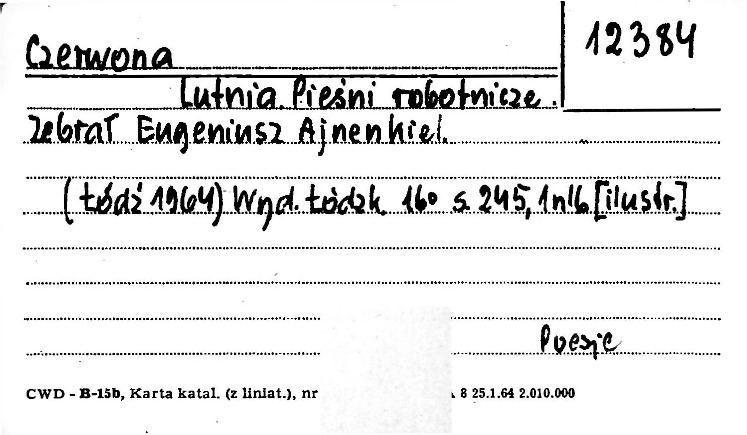 Czerwona
12384
Lutnia. Pieśni robotnicze.
Zebrał Eugeniusz Ajnenkiel.
(Łódź 1964) Wyd. Łódzk. 16° s. 245, 1 nlb. [ilustr.]
Poezje
CWD - B-15b, Karta katal. (z liniat.), nr 8 25.1.64 2.010.000